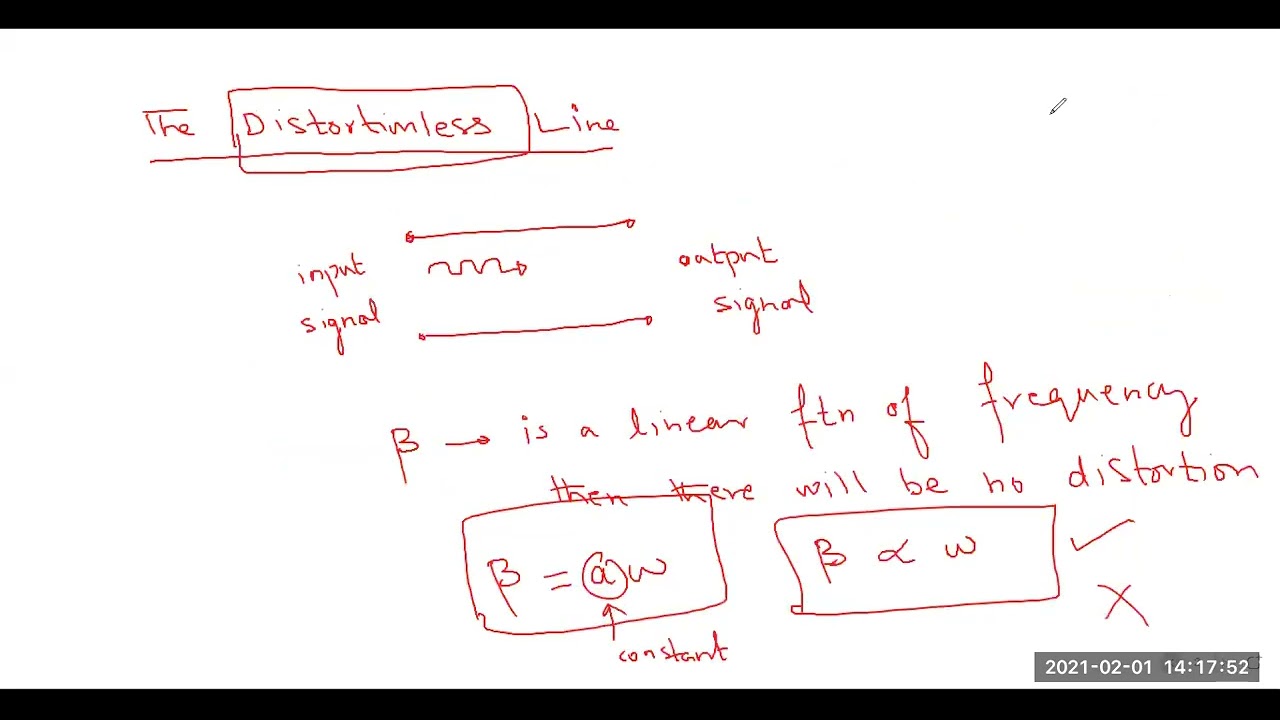 The Distortionless Line
input signal
output signal
β → is a linear ftn of frequency
then there will be no distortion
β = a w
β ∝ w ✓
X
constant
2021-02-01 14:17:52